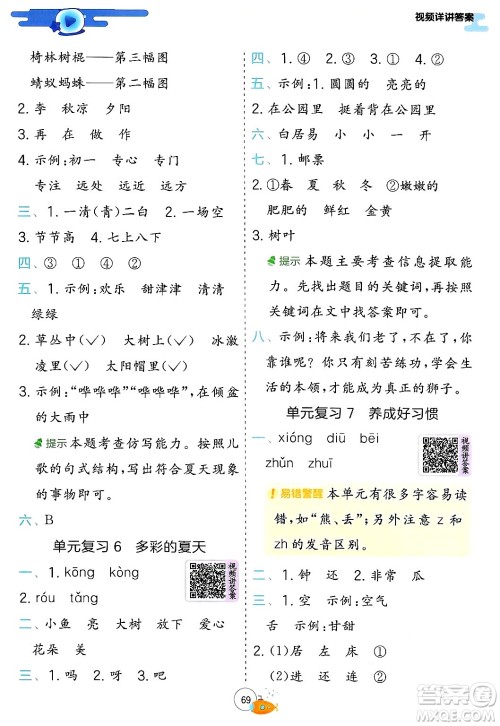 视频详讲答案
椅林树棍——第三幅图
蜻蚁蚂蛛——第二幅图
2. 李 秋凉 夕阳
3. 再 在 做 作
4. 示例:初一 专心 专门
专注 远处 远近 远方
三、1. 一清(青)二白 2. 一场空
3. 节节高 4. 七上八下
四、③①④②
五、1. 示例:欢乐 甜津津 清清
绿绿
2. 草丛中(✓) 大树上(✓) 冰激
凌里(✓) 太阳帽里(✓)
3. 示例:“哗哗哗”“哗哗哗”,在倾盆
的大雨中
提示 本题考查仿写能力。按照儿
歌的句式结构,写出符合夏天现象
和事物的句子即可。
六、B
单元复习6 多彩的夏天
一、1. kōng kòng
2. róu tǎng
视频讲答案
二、小鱼 亮 大树 动 凉爽
花朵 美
三、1. 吗 呀 2. 吧 呢
四、1. ④ ② 2. ① ③
五、示例:1. 圆圆的 亮亮的
2. 在公园里 挺着 在公园里
六、白居易 小 小 一 开
七、1. 邮票
2. ①春 夏 秋 冬 ②嫩嫩的
肥肥的 鲜红 金黄
3. 树叶
提示 本题主要考查信息提取能
力。先找出题目的关键词,再根据
关键词在文中找答案即可。
八、示例:将来我们老了,不在了,你
靠谁呢?你应当刻苦练功,学会生
活的本领,成为真正的狮子。
单元复习7 养成好习惯
一、xióng diū bēi
zhǔn zhuī
视频讲答案
易错警醒 本单元有很多字容易读
错,如“熊、丢”;另外注意 z 和
zh 的发音区别。
二、1. 钟 还 2. 非常 元
三、1. 空 示例:空气
舌 示例:甘甜
2. (1)居 左 床 (1)
(2)进 还 连 (2)
69
答案圈